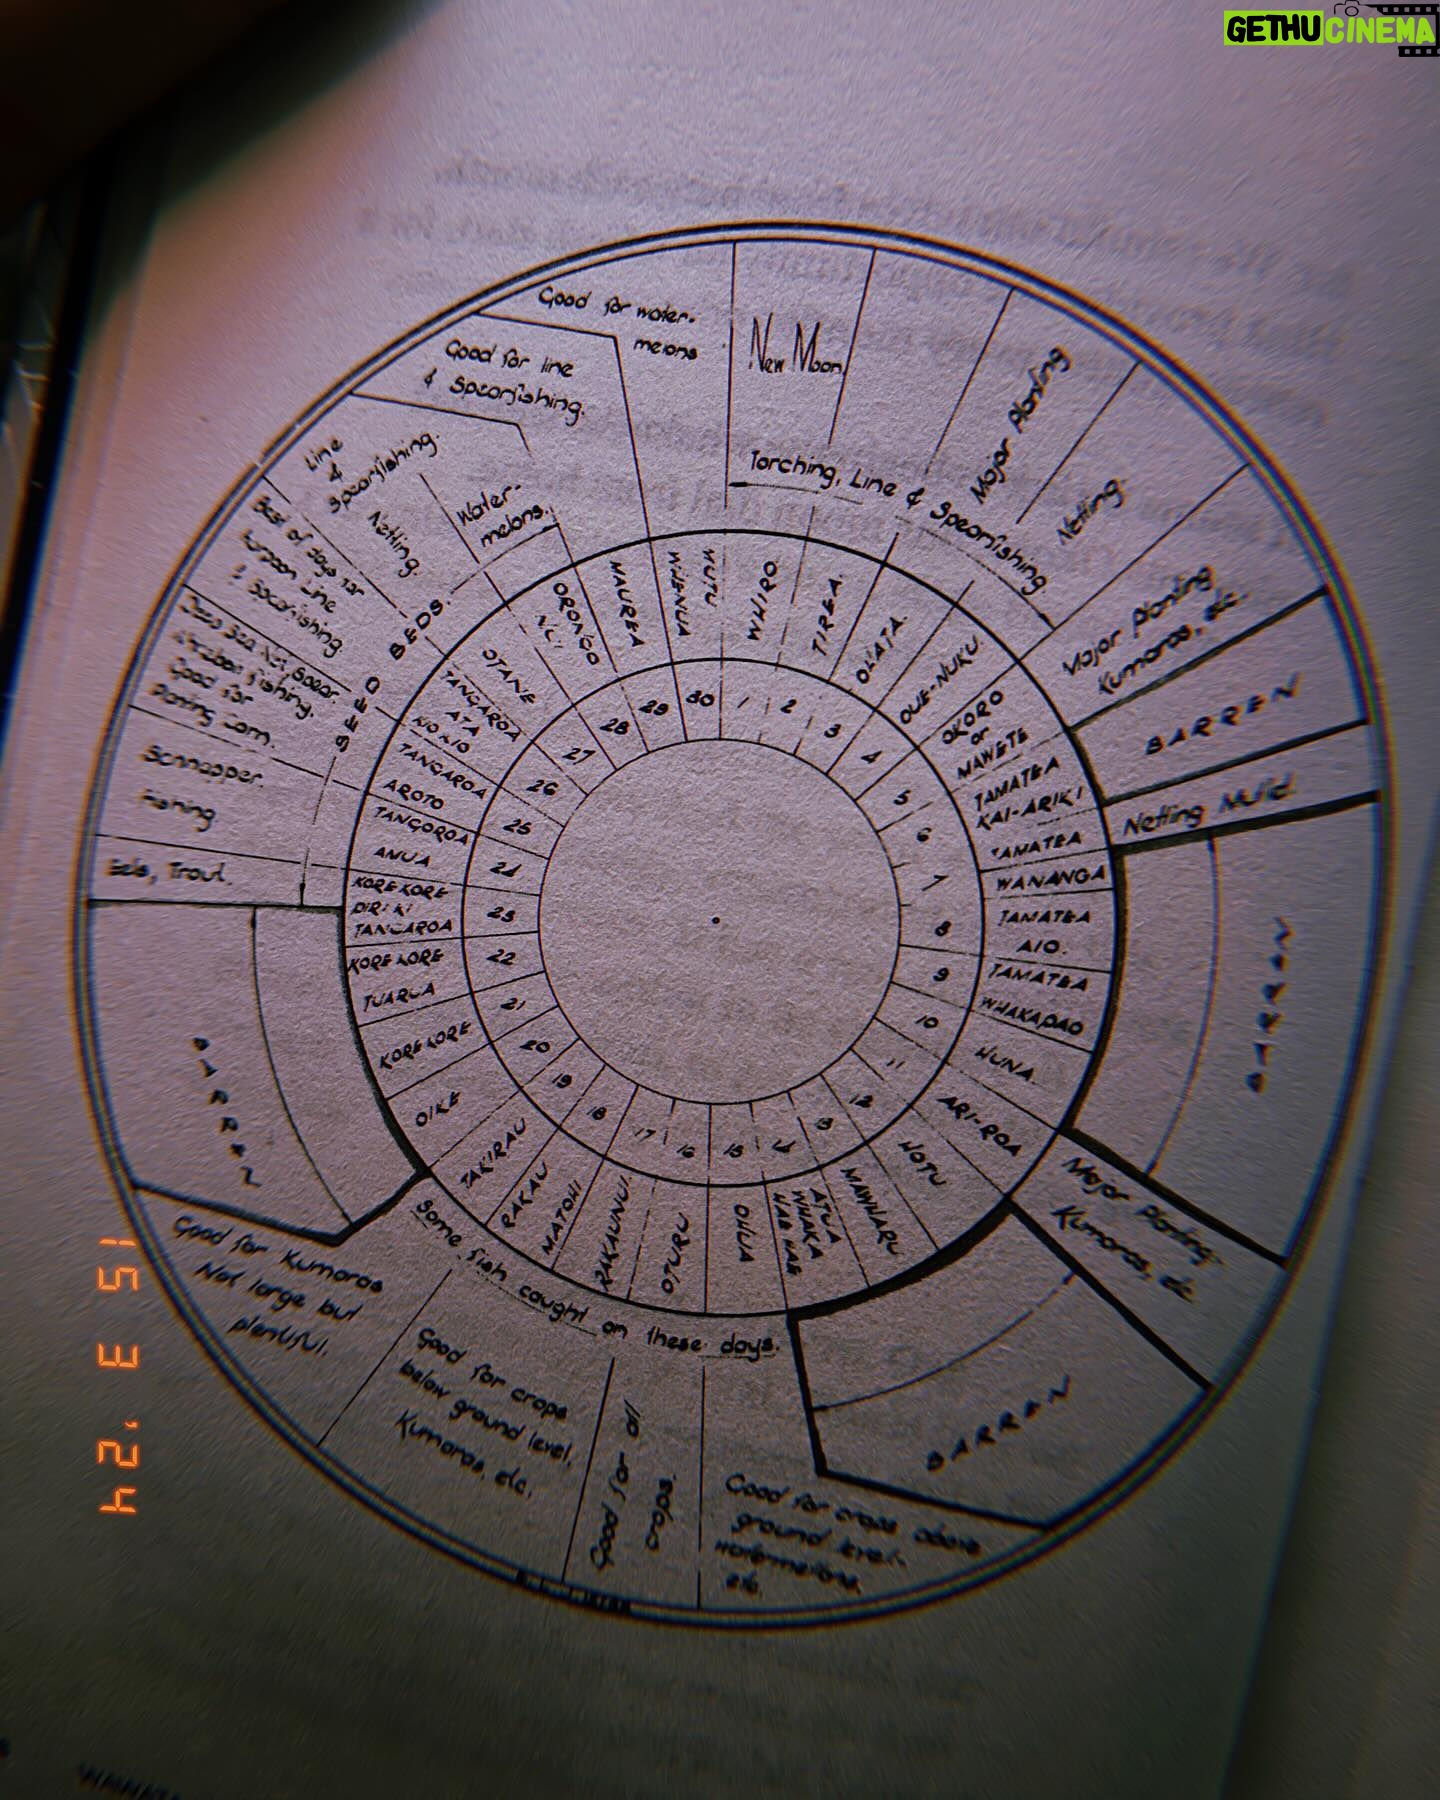 GETHUCINEMA
Good for water-
melons
New Moon
Torching, Line & Spearfishing
Major Planting
Netting.
Major Planting
Kumaras, etc.
BARREN
Netting Mul
BARREN
Major Planting
Kumaras, etc
BARREN
Good for crops above
ground level.
Watermelons,
etc.
Good for all
crops.
Good for crops
below ground level,
Kumaras, etc.
Some fish caught on these days.
Good for Kumaras
Not large but
plentiful.
BARREN
Eels, Trout.
Schnapper.
Fishing
Good for
Planting Corn.
Best of days for
Line
& Spearfishing
Netting.
Line
&
Spearfishing.
Water-
melons.
SEED BEDS.
Good for line
& Spearfishing.
WHIRO
TIREA.
OUATA.
OUE-NUKU.
OKORO
or
MAWETE
TAMATEA
KAI-ARIKI
TAMATEA
WANANGA
TAMATEA
AIO.
TAMATEA
WHAKAPAO
HUNA
ARI-ROA
HOTU
MAWHARU
ATUA
WHAKA
HAEHAE
OHUA
OTURU
RAKAUNUI.
RAKAU
MATOHI
TAKIRAU
OIKE
KOREKORE
KOREKORE
TUARUA
KOREKORE
PIRIKI
TANGAROA
TANGOROA
ANUA
TANGAROA
AROTO
TANGAROA
ATA
KIOKIO
OTANE
ORONGO
NUI
MAUREA
MUTU
WHENUA
1
2
3
4
5
6
7
8
9
10
11
12
13
14
15
16
17
18
19
20
21
22
23
24
25
26
27
28
29
30
15 3 '24